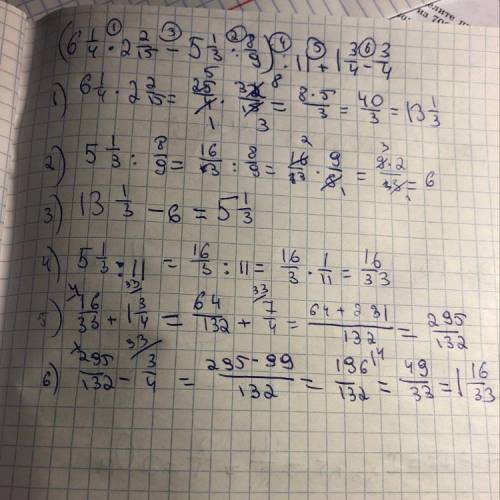 (6 1/4 · 2 2/15 − 5 1/3 : 8/9) : 11 + 1 3/4 − 3/4
1) 6 1/4 · 2 2/15 = 25/4 · 32/15 = 8·5/3 = 40/3 = 13 1/3
2) 5 1/3 : 8/9 = 16/3 : 8/9 = 16/3 · 9/8 = 3·2/1 = 6
3) 13 1/3 − 6 = 5 1/3
4) 5 1/3 : 11 = 16/3 : 11 = 16/3 · 1/11 = 16/33
5) 16/33 + 1 3/4 = 64/132 + 7/4 = 64+231/132 = 295/132
6) 295/132 − 3/4 = 295−99/132 = 196/132 = 49/33 = 1 16/33